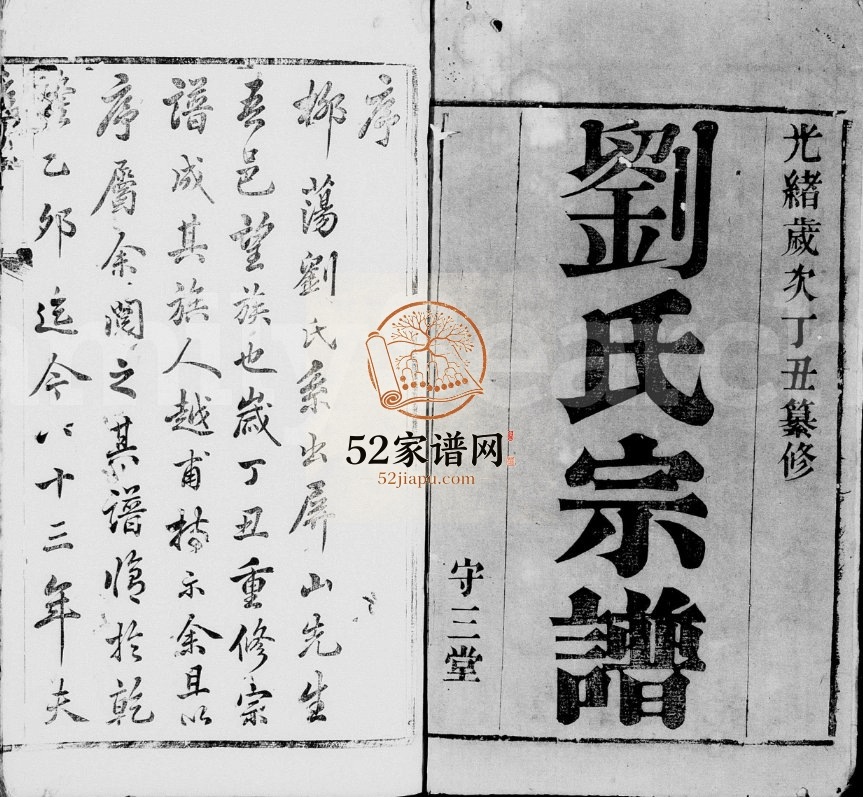 光緒歲次丁丑纂修
劉氏宗譜
守三堂
序
柳蕩劉氏系出屏山先生
吾邑望族也歲丁丑重修宗
譜成其族人越甫持示余且以
序屬余閱之其譜修於乾
隆乙卯迄今八十三年夫
52家谱网
52jiapu.com